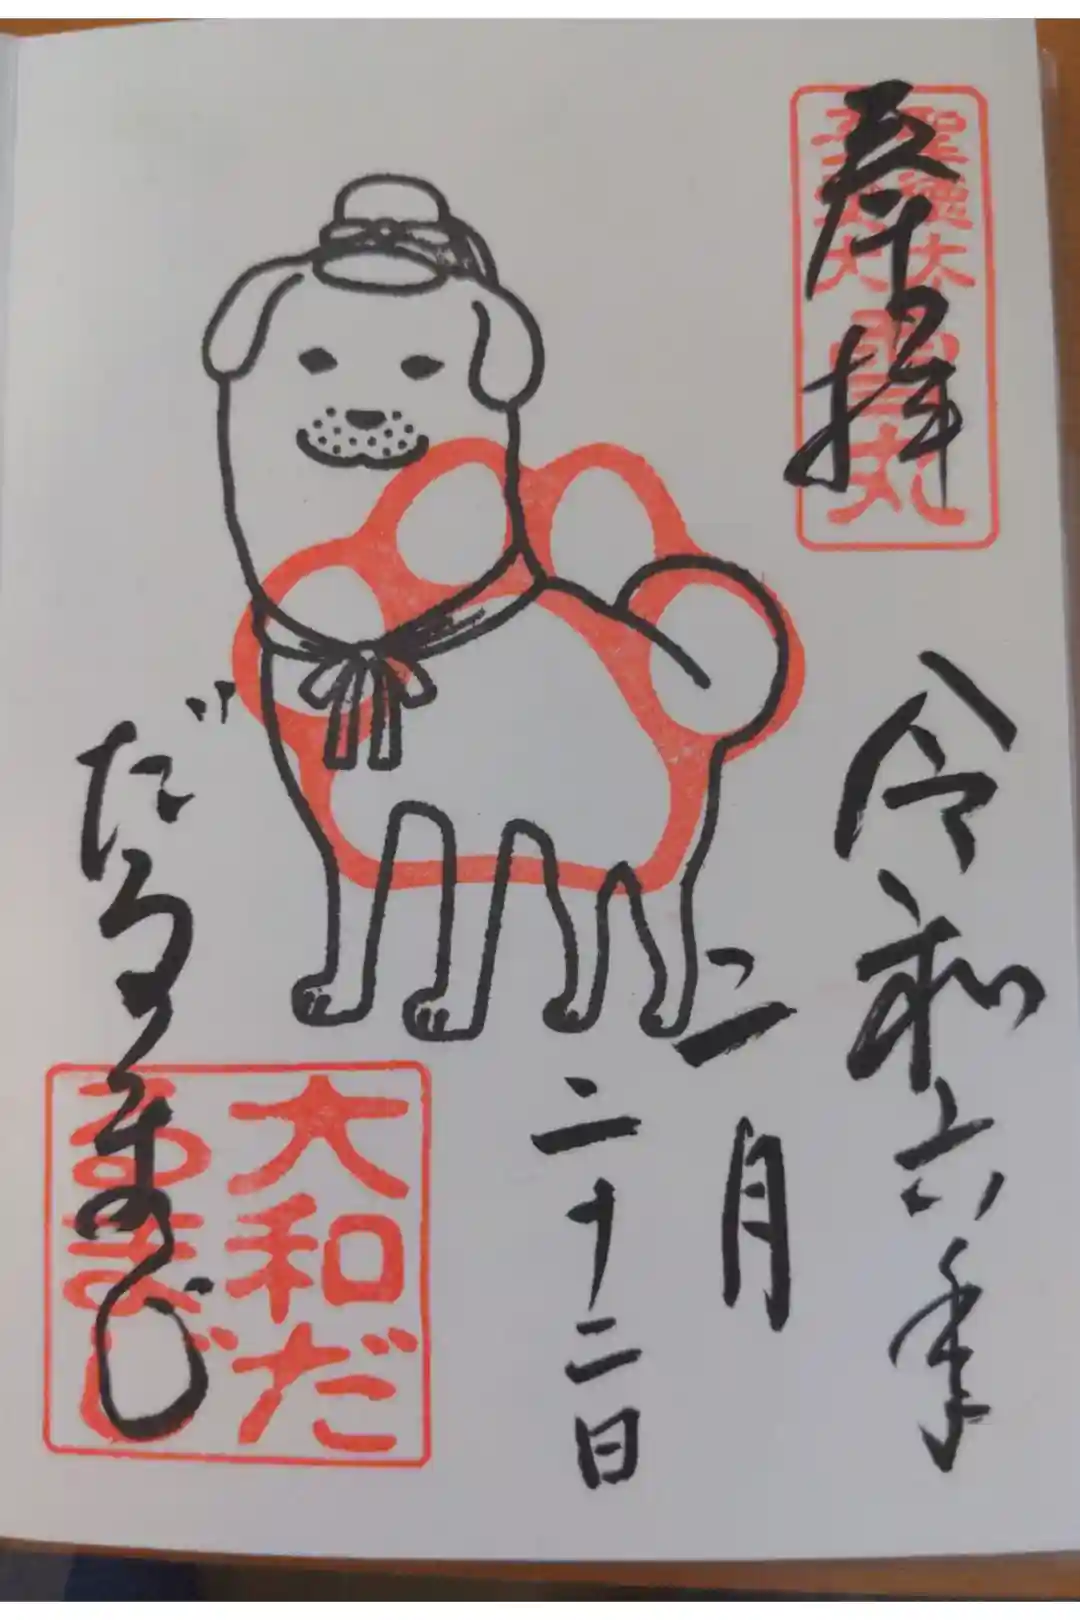 奉拝
聖徳太
子愛犬
雪丸
令和六年
二月
二十二日
だるまじ
大和だ
るまじ